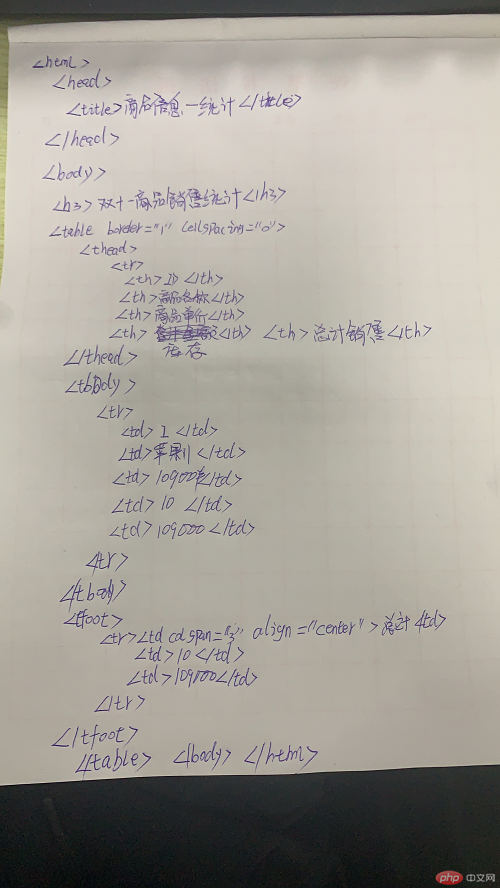 <html>
<head>
<title>商品信息一统计</title>
</head>
<body>
<h3>双十一商品销售统计</h3>
<table border="1" cellspacing="0">
<thead>
<tr>
<th>ID</th>
<th>商品名称</th>
<th>商品单价</th>
<th></th> <th>总计销售</th>
库存
</thead>
<tbody>
<tr>
<td>1</td>
<td>苹果</td>
<td>10900</td>
<td>10</td>
<td>109000</td>
</tr>
</tbody>
<tfoot>
<tr><td colspan="3" align="center">总计</td>
<td>10</td>
<td>109000</td>
</tr>
</tfoot>
</table> </body> </html>
php 中文网